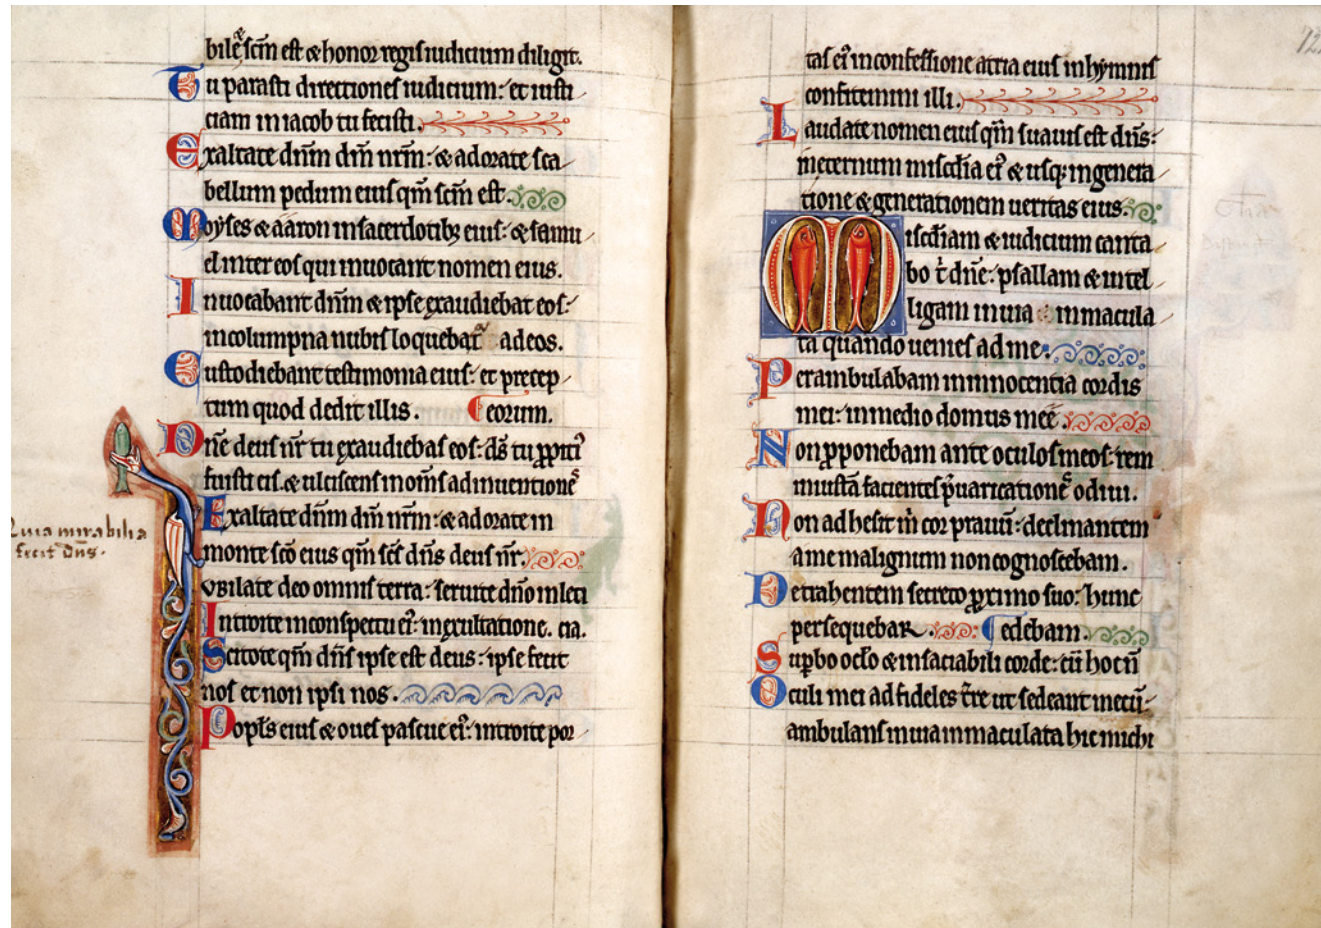 bile & scīm est & honor regis iudicium diligit.
Tu parasti directiones iudicium: et iusti
ciam in iacob tu fecisti.
Exaltate dn̄m dm̄ nr̄m: & adorate sca
bellum pedum eius qm̄ scm̄ est.
Moyses & aaron in sacerdotibꝫ eius: & samu
el inter eos qui inuocant nomen eius.
Inuocabant dn̄m & ipse exaudiebat eos:
in columpna nubis loquebat᷑ ad eos.
Custodiebant testimonia eius: et precep
tum quod dedit illis. eorum.
Dn̄e deus nr̄ tu exaudiebas eos: ds̄ tu ꝓpiti᷒
fuisti eis. & ulciscens in om̄s adinuentiones
Exaltate dn̄m dm̄ nr̄m: & adorate in
monte sc̄o eius qm̄ sc̄s dn̄s deus nr̄.
Quia mirabilia
fecit dn̄s.
IVBilate deo omnis terra: seruite dn̄o in leti
Introite in conspectu ei᷒: in exultatione. cia.
Scitote qm̄ dn̄s ipse est deus: ipse fecit
nos et non ipsi nos.
Popl̄s eius & oues pascue ei᷒: introite por
tas ei᷒ in confessione atria eius in hymnis
confitemini illi.
Laudate nomen eius qm̄ suauis est dn̄s:
in eternum misc̄dia ei᷒ & usqꝫ in genera
tione & generationem ueritas eius.
Misc̄diam & iudicium canta
bo t̄ dn̄e: psallam & intel
ligam in uia immacula
ta quando uenies ad me.
Perambulabam in innocentia cordis
mei: in medio domus meę.
Non ꝓponebam ante oculos meos: rem
iniustā facientes p̄uaricationes odiui.
Non adhesit m̄ cor prauū: declinantem
a me malignum non cognoscebam.
Detrahentem secreto ꝓximo suo: hunc
persequebar. edebam.
Sup̱bo oc̄lo & insaciabili corde: cū hoc n̄
Oculi mei ad fideles t̄re ut sedeant mecū:
ambulans in uia immaculata hic michi